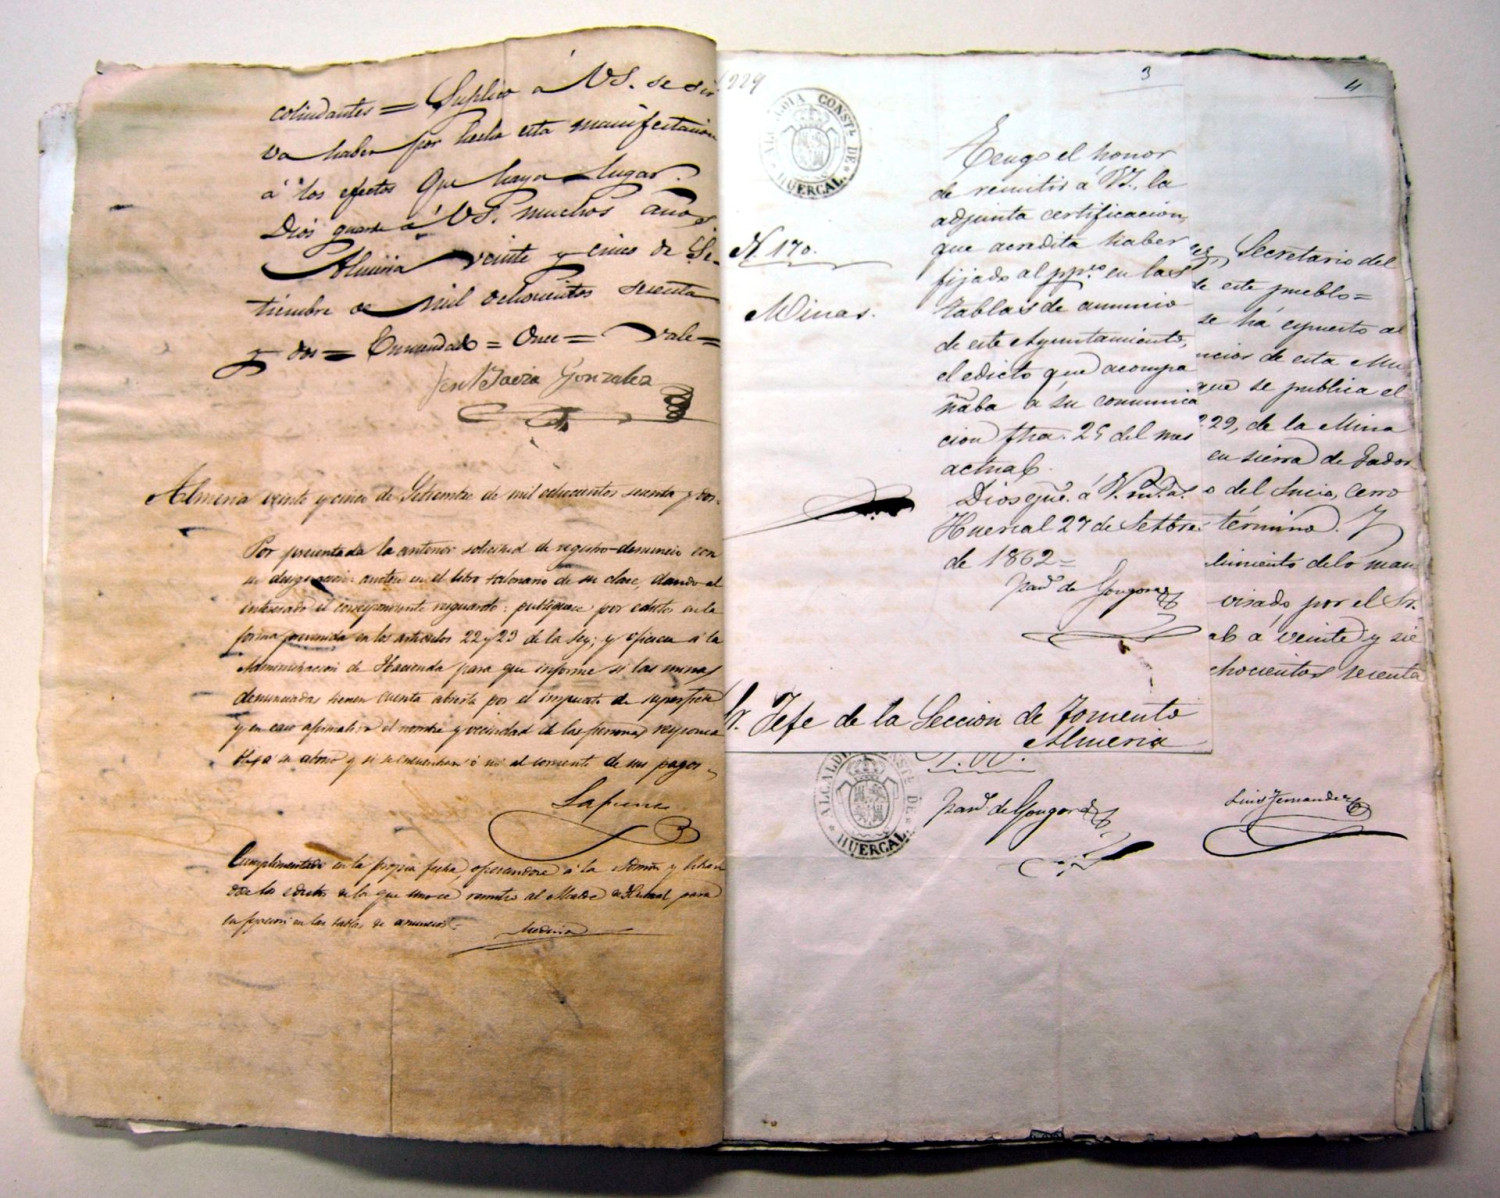 colindantes = Suplico á VS. se sir
va haber por hecha esta manifestacion
á los efectos que haya lugar.
Dios guarde á VS. muchos años
Almeria veinte y cinco de Se-
tiembre de mil ochocientos sesenta
y dos = Enmendado = Once = Vale =
Gonzalez
Almeria veinte y cinco de Setiembre de mil ochocientos sesenta y dos.
Por presentada la anterior solicitud de registro-denuncio con
su designacion anotese en el libro talonario de su clase, dando al
interesado el correspondiente resguardo: publiquese por edictos en la
forma prevenida en los articulos 22 y 23 de la ley; y oficiese á la
Administracion de Hacienda para que informe si las minas
denunciadas tienen cuenta abierta por el impuesto de superficie
y en caso afirmativo el nombre y vecindad de las personas responsa
bles á su abono y si se encuentran ó no al corriente de sus pagos.
Lafuente
Cumplimentado en la propia fecha, oficiandose á la Admon y
los edictos de la que se remite al Alcalde de Huercal para
su fijacion en las tablas de anuncios.
Medina
229
3
4
ALCALDIA CONSTL. DE HUERCAL.
N. 170.
Minas.
Tengo el honor
de remitir á VS. la
adjunta certificacion,
que acredita haber
fijado al ppco. en las
tablas de anuncio
de este Ayuntamiento,
el edicto que acompa
ñaba á su comunica
cion fha. 25 del mes
actual.
Dios gue. á V. ms. as.
Huercal 27 de Setbre.
de 1862 =
Franco. de Gongora
Sr. Jefe de la Seccion de Fomento
Almeria
Secretario del
de este pueblo =
se há espuesto al
ncios de esta Mu
que se publica el
229, de la Mina
en sierra de Gador
o del Sucio, Cerro
término. Y
limiento de lo man
visado por el Sr.
al á veinte y sie
chocientos sesenta
V. B.
ALCALDIA CONSTL. DE HUERCAL.
Franco. de Gongora
Luis Fernandez